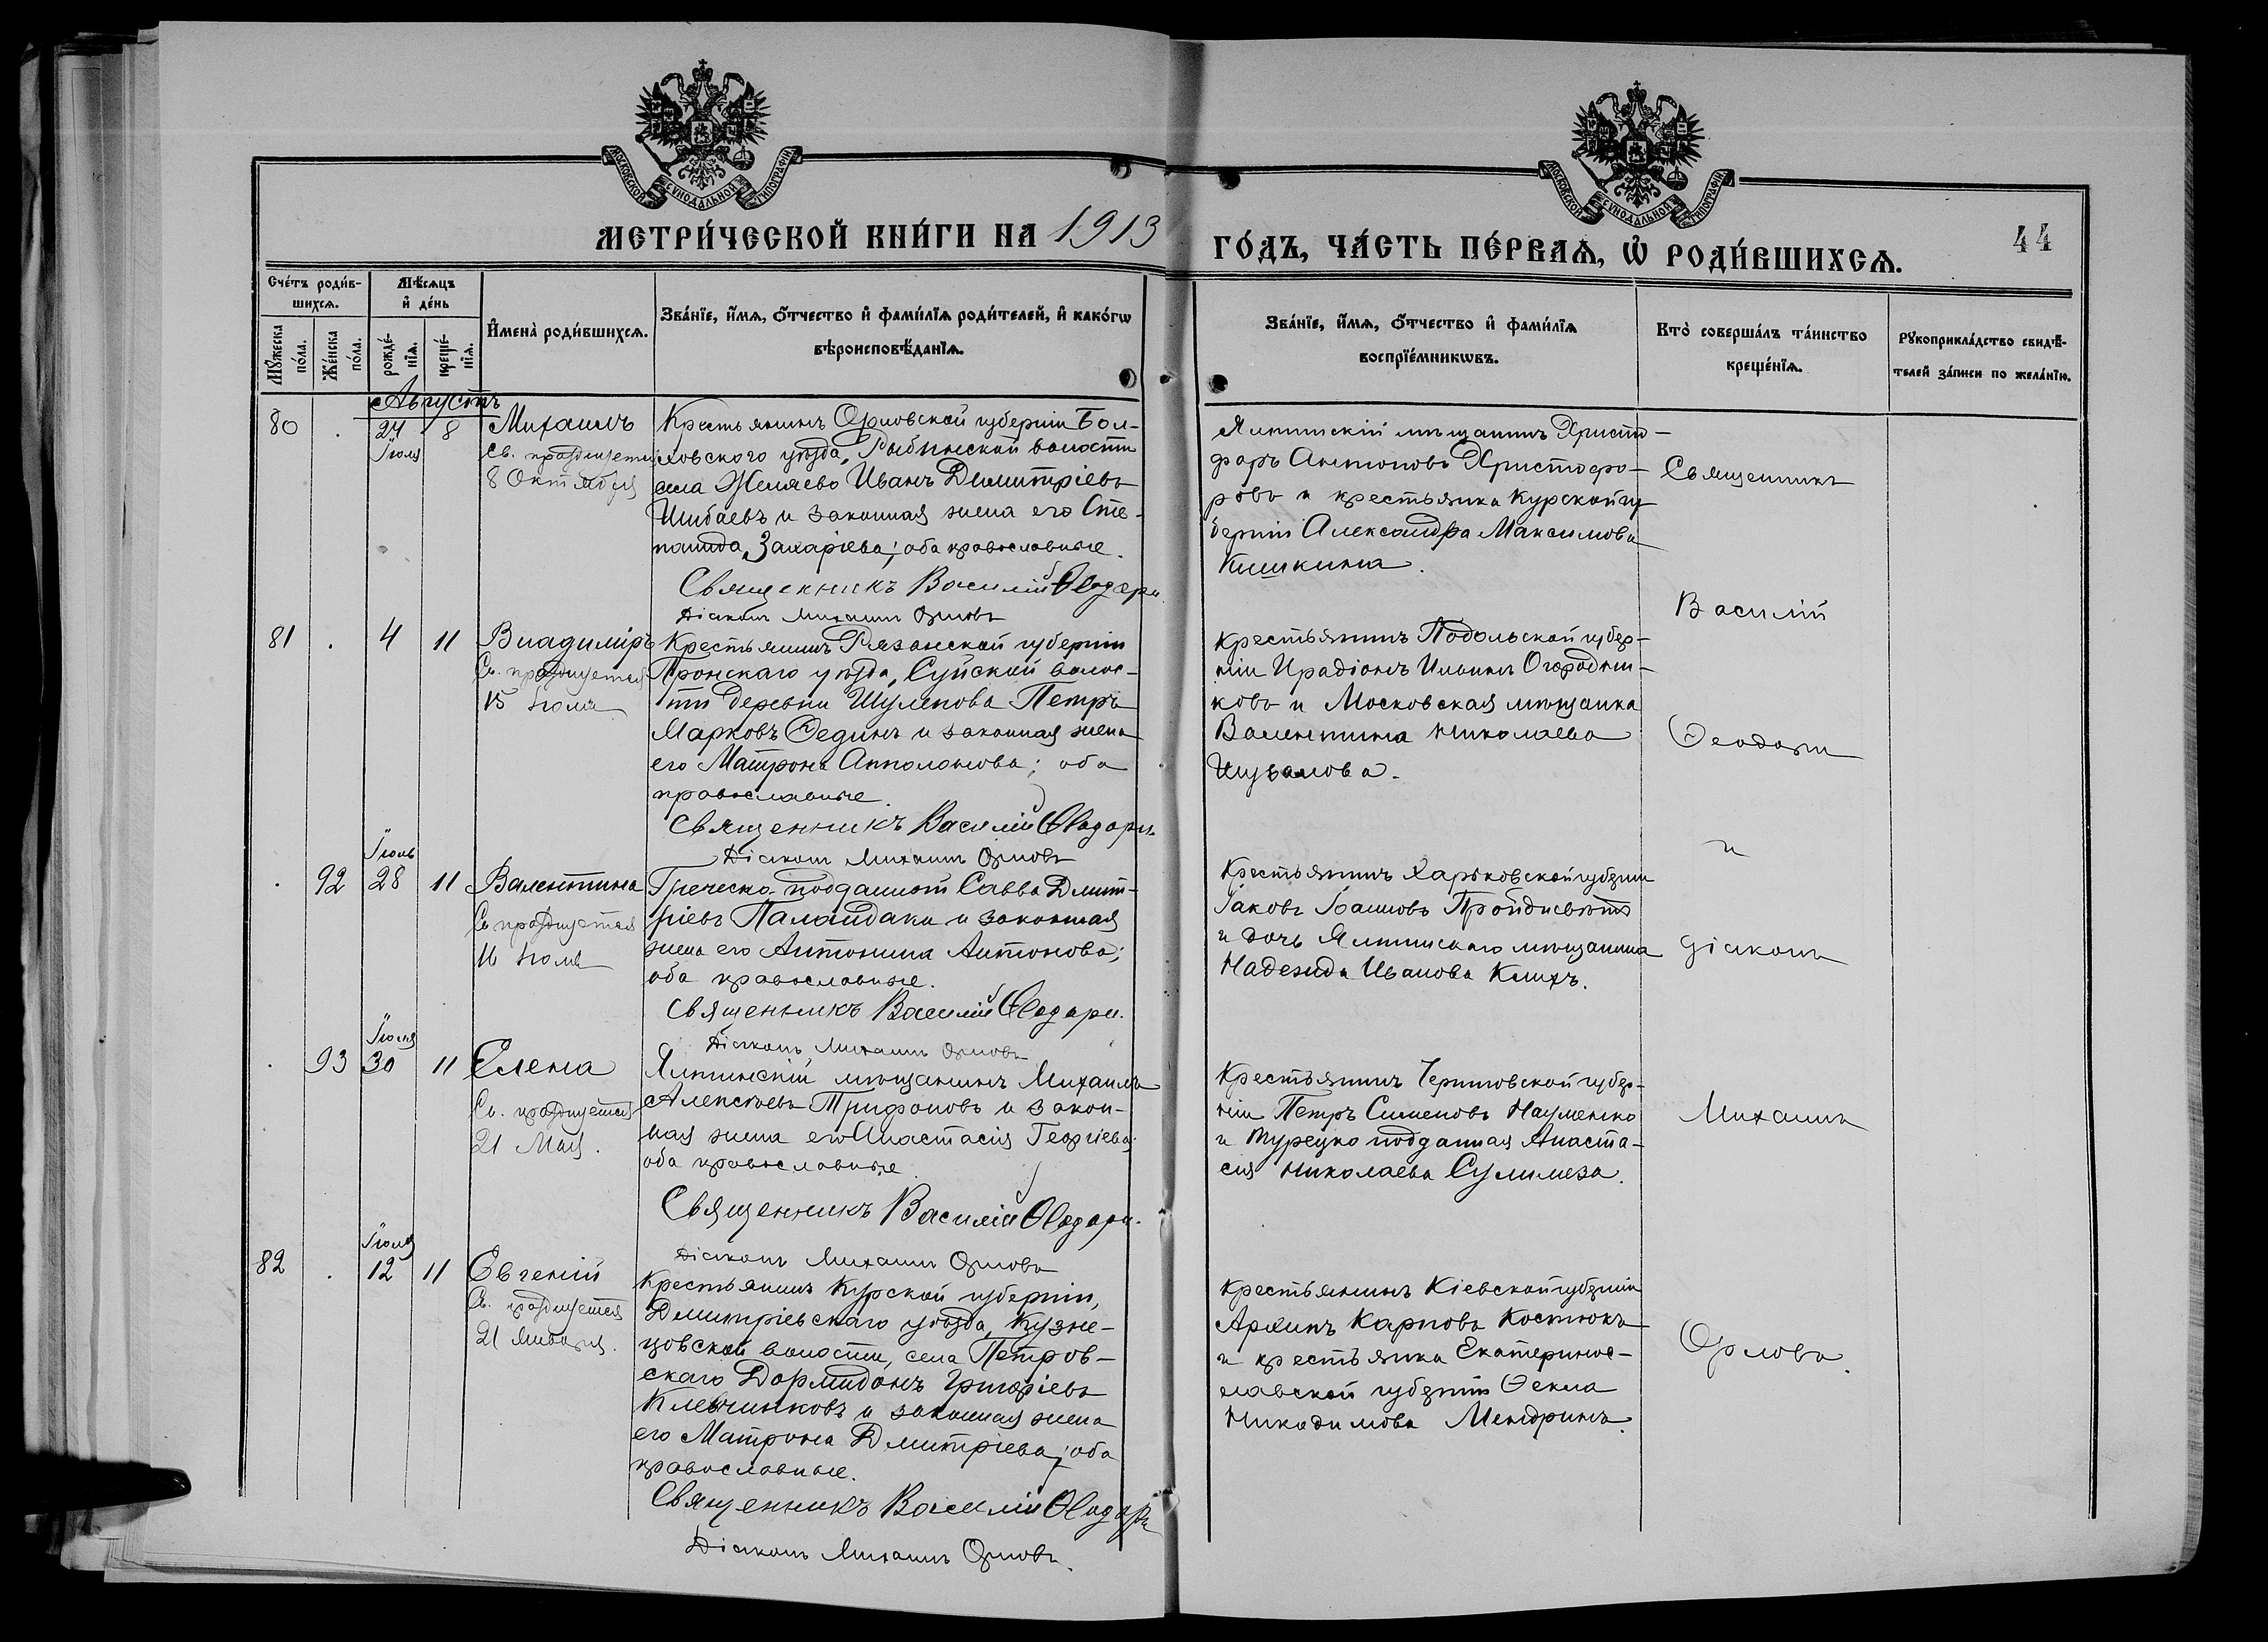 МОСКОВСКОЙ СѴНОДАЛЬНОЙ ТИПОГРАФІИ
МОСКОВСКОЙ СѴНОДАЛЬНОЙ ТИПОГРАФІИ
МЕТРИ́ЧЕСКОЙ КНИ́ГИ НА 1913 ГО́ДЪ, ЧА́СТЬ ПЕ́РВАѦ, Ѡ҆ РОДИ́ВШИХСѦ.
44
Сче́тъ роди́в-
шихсѧ.
Мꙋ́жеска
по́ла.
Же́нска
по́ла.
Мѣ́сѧцъ
и҆ де́нь
рожде́-
нїѧ.
креще́-
нїѧ.
И҆мена̀ роди́вшихсѧ.
Зва́нїе, и҆́мѧ, о҆́тчество и҆ фами́лїѧ роди́телей, и҆ како́гѡ
вѣроисповѣ́данїѧ.
Зва́нїе, и҆́мѧ, о҆́тчество и҆ фами́лїѧ
воспрїе́мникѡвъ.
Кто̀ соверша́лъ та́инство
креще́нїѧ.
Рꙋкоприкла́дство свидѣ́-
телей за́писи по жела́нїю.
Августъ
80 . 24 8 Михаилъ
Іюля
Св. празднуется
8 Октября
Крестьянинъ Орловской губерніи Бол-
ховского уѣзда, Рыбинской волости
села Желяево Иванъ Димитріевъ
Шибаевъ и законная жена его Сте-
панида Захаріева; оба православные.
Священникъ Василій Ѳеодори
Діаконъ Михаилъ Орловъ
Ялтинскій мѣщанинъ Христо-
форъ Антоновъ Христофо-
ровъ и крестьянка Курской гу
берніи Александра Максимова
Кишкина.
Священникъ
Василій
Ѳеодори
и
діаконъ
Михаилъ
Орловъ.
81 . 4 11 Владиміръ
Св. празднуется
15 Іюля
Крестьянинъ Рязанской губерніи
Пронскаго уѣзда, Суйской волос-
ти деревни Шулепова Петръ
Марковъ Ѳединъ и законная жена
его Матрона Апполонова; оба
православные.
Священникъ Василій Ѳеодори.
Діаконъ Михаилъ Орловъ
Крестьянинъ Подольской губер-
ніи Ирадіонъ Ильинъ Огородни-
ковъ и Московская мѣщанка
Валентина Николаева
Шувалова.
Іюль
. 92 28 11 Валентина
Св празднуется
16 Іюля
Греческо-подданной Савва Дмит-
ріевъ Паландаки и законная
жена его Антонина Антонова;
оба православные.
Священникъ Василій Ѳеодори.
Діаконъ Михаилъ Орловъ
Крестьянинъ Харьковской губерніи
Іаковъ Іоанновъ Пройдисвѣтъ
и дочь Ялтинскаго мѣщанина
Надежда Иванова Клихъ.
Іюля
. 93 30 11 Елена
Св. празднуется
21 Мая.
Ялтинскій мѣщанинъ Михаилъ
Алексѣевъ Трифоновъ и закон-
ная жена его Анастасія Георгіева;
оба православные
Священникъ Василій Ѳеодори.
Діаконъ Михаилъ Орловъ
Крестьянинъ Черниговской губер-
ніи Петръ Симеоновъ Науменко
и турецко подданная Анаста-
сія Николаева Сулимеза.
Іюля
82 . 12 11 Евгеній
Св. празднуется
21 Января.
Крестьянинъ Курской губерніи,
Дмитріевскаго уѣзда, Кузне-
цовской волости, села Петров-
скаго Дормидонъ Григоріевъ
Клевчинковъ и законная жена
его Матрона Дмитріева; оба
православные.
Священникъ Василій Ѳеодори
Діаконъ Михаилъ Орловъ.
Крестьянинъ Кіевской губерніи
Архипъ Карповъ Костюкъ
и крестьянка Екатеринос-
лавской губерніи Ѳекла
Никодимова Мендринъ.